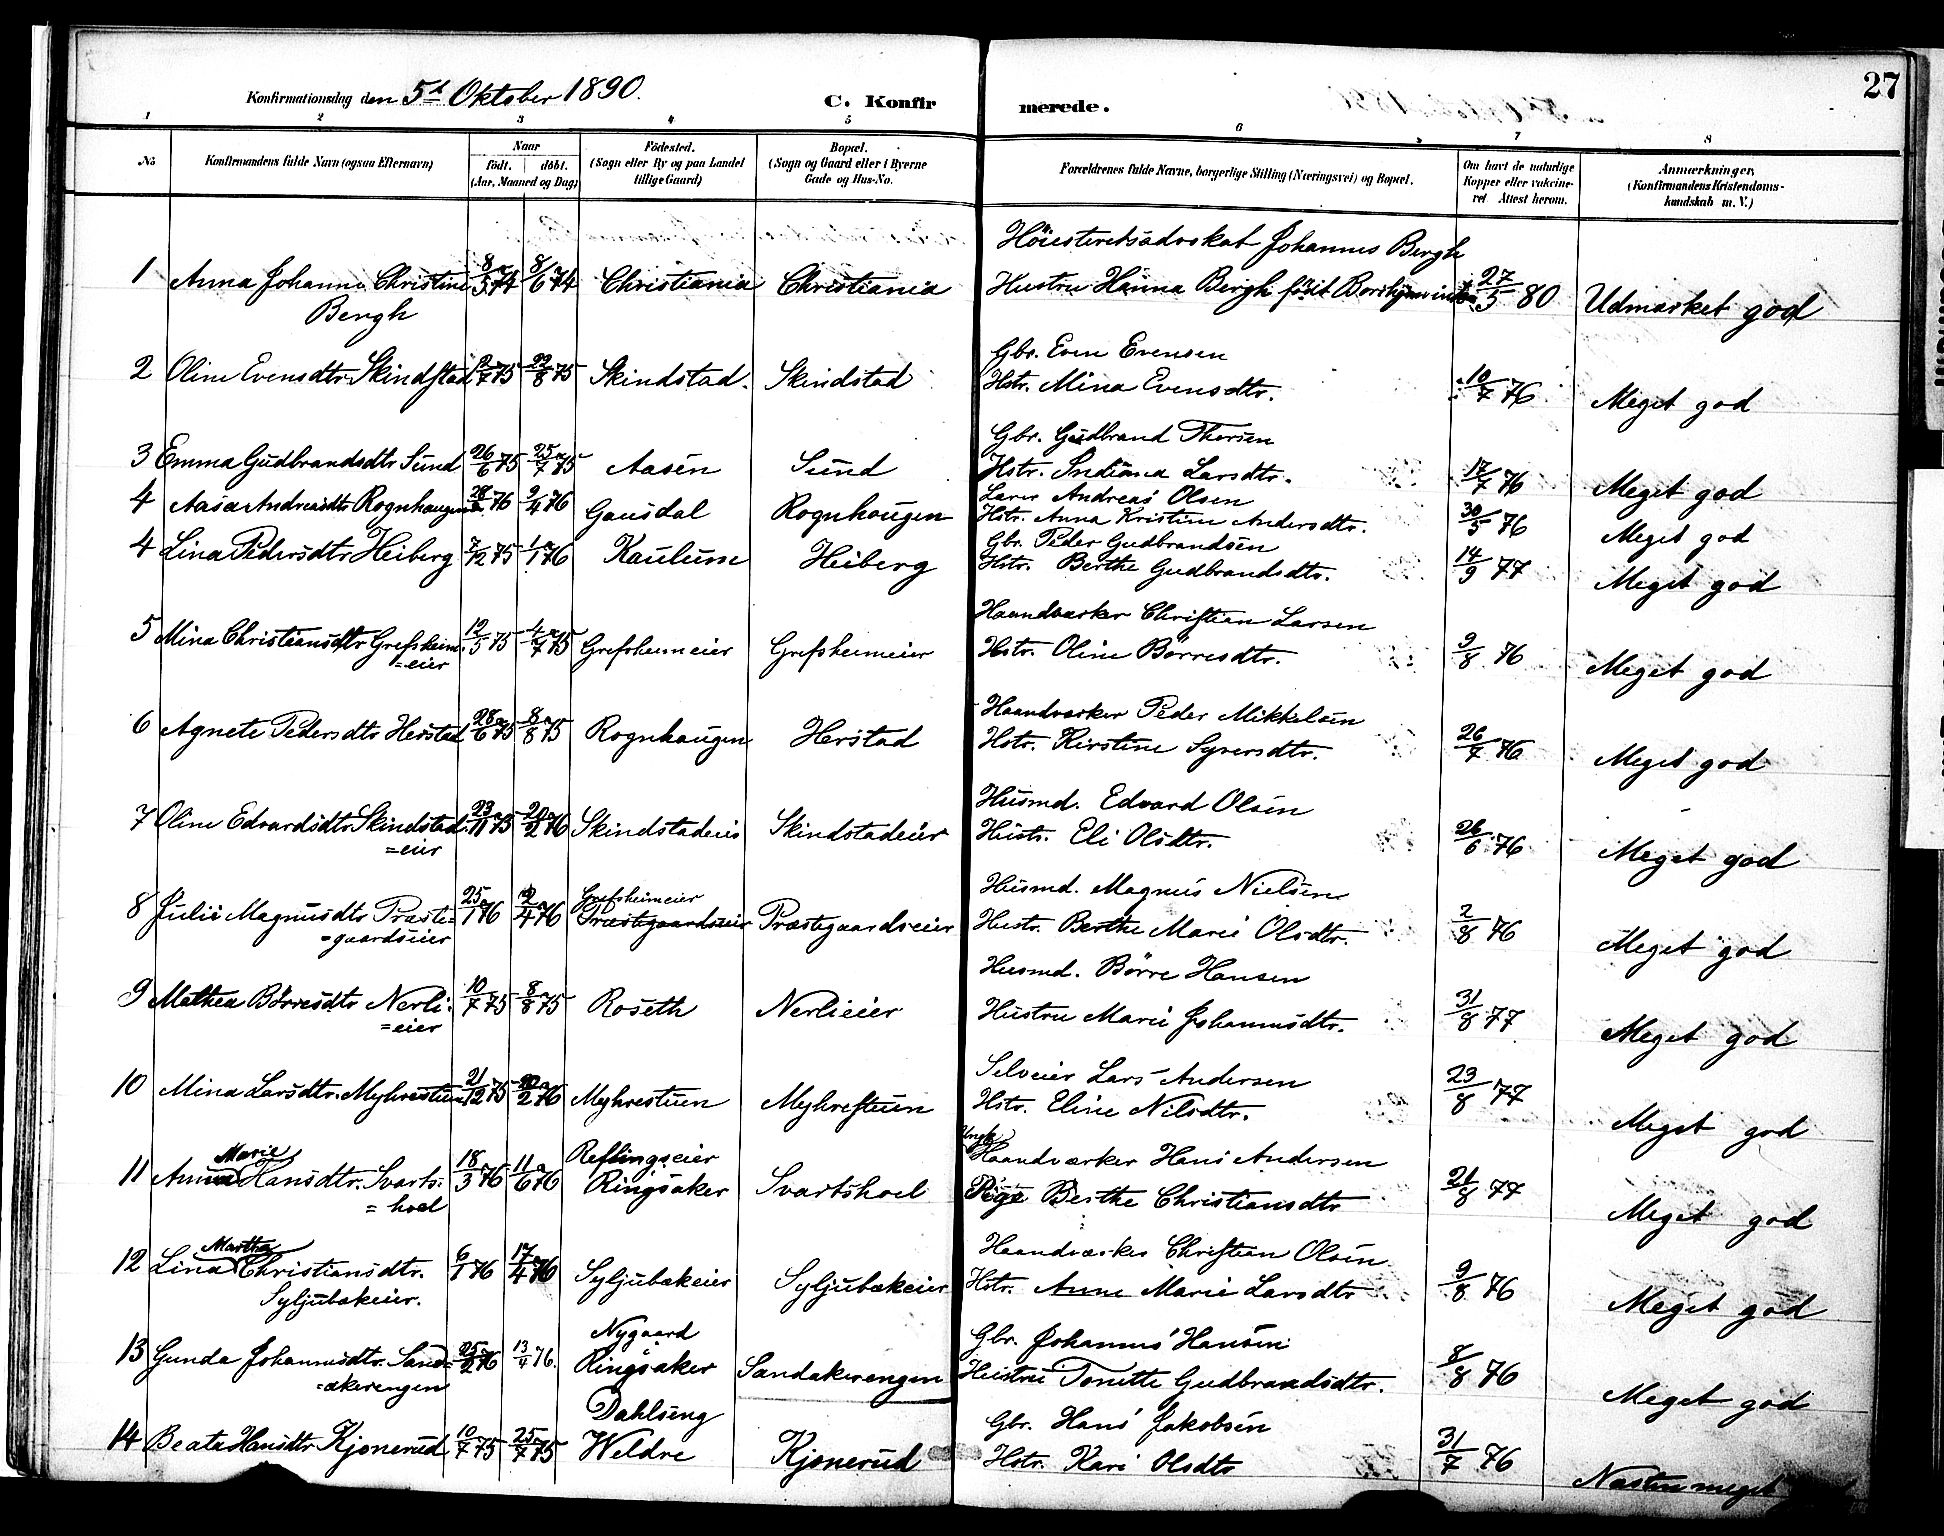 27
Konfirmationsdag den 5t Oktober 1890.
C. Konfirmerede.
1 2 3 4 5 6 7 8
No
Konfirmandens fulde Navn (ogsaa Efternavn)
Naar
födt. döbt.
(Aar, Maaned og Dag)
Födested.
(Sogn eller By og paa Landet
tillige Gaard)
Bopæl.
(Sogn og Gaard eller i Byerne
Gade og Hus-No.
Forældrenes fulde Navne, borgerlige Stilling (Næringsvei) og Bopæl.
Om havt de naturlige
Kopper eller vakcine-
ret Attest herom.
Anmærkninger,
(Konfirmandens Kristendoms-
kundskab m. V.)
Höiesteretsadvokat Johannes Bergh
1 Anna Johanne Christine 8/5 74 8/6 74 Christiania Christiania Hustru Hanna Bergh födt 27/5 80 Udmærket god
Bergh
Gbr. Even Evensen
2 Oline Evensdtr. Skindstad /7 75 22/8 75 Skindstad. Skindstad Hstr. Mina Evensdtr. 10/7 76 Meget god
Gbr. Gudbrand Thorsen
3 Emma Gudbrandsdtr Sund 26/6 75 25/7 75 Aasen Sund Hstr. Indiana Larsdtr. 17/7 76 Meget god
Lærer Andreas Olsen
4 Aasa Andreasdtr Rognhaugen 28/ 76 9/4 76 Gausdal Rognhougen Hstr. Anna Kristine Andersdtr. 30/5 76 Meget god
Gbr. Peder Gudbrandsen
4 Lina Pedersdtr. Heiberg 7/12 75 1/1 76 Kaulum Heiberg Hstr. Berthe Gudbrandsdtr. 14/9 77 Meget god
Haandværker Christian Larsen
5 Mina Christiansdtr Grefsheim 12/5 75 4/7 75 Grefsheimeier Grefsheimeier Hstr. Oline Börresdtr. 9/8 76 Meget god
=eier
Haandværker Peder Mikkelsen
6 Agnete Pedersdtr Herstad 28/6 75 8/8 75 Rognhaugen Herstad Hstr. Kirstine Syversdtr. 26/7 76 Meget god
Husmd. Edvard Olsen
7 Oline Edvardsdtr. Skindstad 23/11 75 20/2 76 Skindstadeie Skindstadeier Hustr. Eli Olsdtr. 26/6 76 Meget god
=eier
Grefsheimeier Husmd. Magnus Nielsen
8 Julie Magnusdtr Præste= 25/1 76 2/4 76 Præstegaardseier Præstegaardseier Hustr. Berthe Marie Olsdtr. 2/8 76 Meget god
=gaardseier
Husmd. Börre Hansen
9 Mathea Börresdtr Nerli= 10/7 75 8/8 75 Roseth Nerlieier Hustru Marie Johannesdtr. 31/8 77 Meget god
=eier
Selveier Lars Andersen
10 Mina Larsdtr. Myhrestuen 21/12 75 20/2 76 Myhrestuen Myhrestuen Hstr. Eline Nilsdtr. 23/8 77 Meget god
Marie Reflingseier Ungk. Haandværker Hans Andersen
11 Anna Hansdtr. Svarts= 18/3 76 11/6 76 Ringsaker Svartshoel Pige Berthe Christiansdtr 21/8 77 Meget god
=hoel
Martha Haandværker Christian Olsen
12 Lina Christiansdtr. 6/1 76 17/4 76 Syljubækeier Syljubækeier Hstr. Anne Marie Larsdtr 9/8 76 Meget god
Syljubækeier.
Nygaard Gbr. Johannes Hansen
13 Gunda Johannesdtr. Sand= 25/2 76 13/4 76. Ringsaker Sandakerengen Hustru Tonette Gudbrandsdtr. 8/8 76 Meget god
=akerengen
Dahlseng Gbr. Hans Jakobsen
14 Beate Hansdtr Kjonerud 10/7 75 25/7 75 Veldre Kjonerud Hstr. Kari Olsdtr 31/7 76 Næsten meget